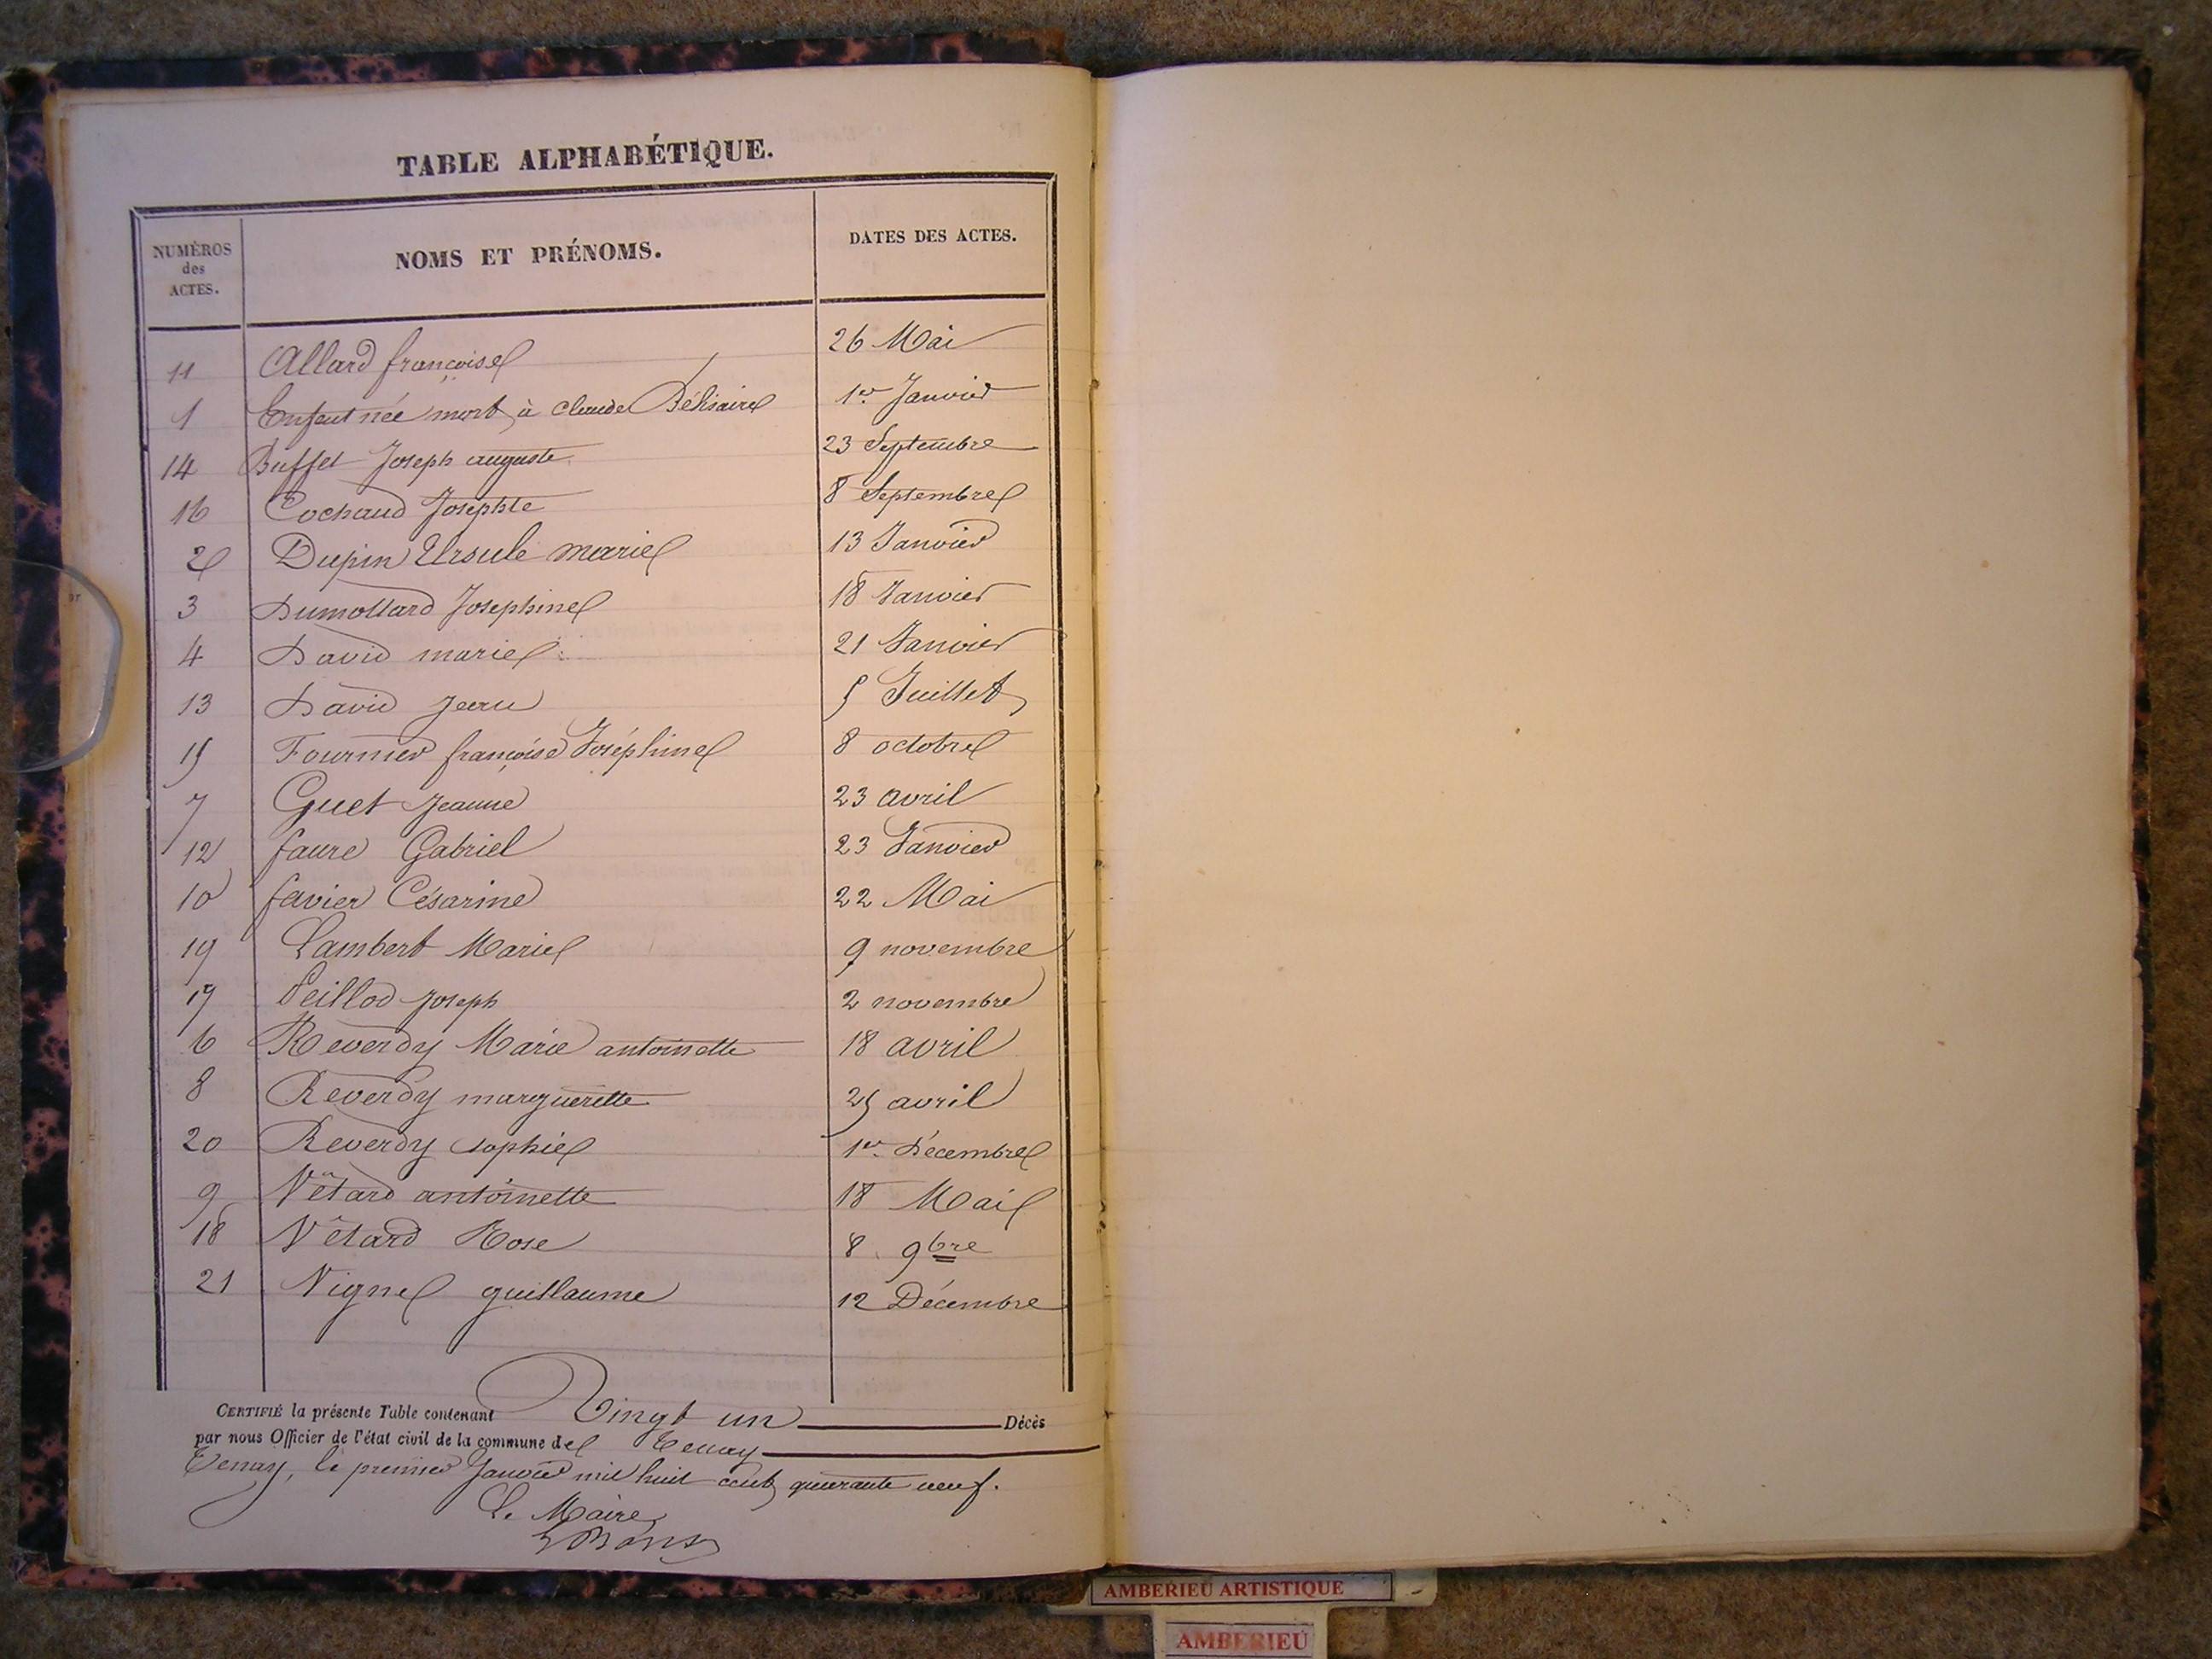 TABLE ALPHABÉTIQUE.
NUMÉROS des ACTES. NOMS ET PRÉNOMS. DATES DES ACTES.
11 Allard françoise 26 Mai
1 Enfant née mort à claude Bélisaire 1er Janvier
14 Buffet Joseph auguste 23 Septembre
16 Cochaud Josephte 8 Septembre
2 Dupin Ursule marie 13 Janvier
3 Dumollard Josephine 18 Janvier
4 David marie 21 Janvier
13 David Jean 5 Juillet
15 Fournier françoise Joséphine 8 octobre
7 Guet Jeanne 23 avril
12 faure Gabriel 23 Janvier
10 favier Césarine 22 Mai
19 Lambert Marie 9 novembre
17 Peillod Joseph 2 novembre
6 Reverdy Marie antoinette 18 avril
8 Reverdy marguerette 25 avril
20 Reverdy sophie 1er Décembre
9 Vétard antoinette 18 Mai
18 Vétard Rose 8 9bre
21 Vigne guillaume 12 Décembre
CERTIFIÉ la présente Table contenant Vingt un Décès
par nous Officier de l'état civil de la commune de Tenay
Tenay, le premier Janvier mil huit cent quarante neuf.
Le Maire
AMBERIEU ARTISTIQUE
AMBERIEU